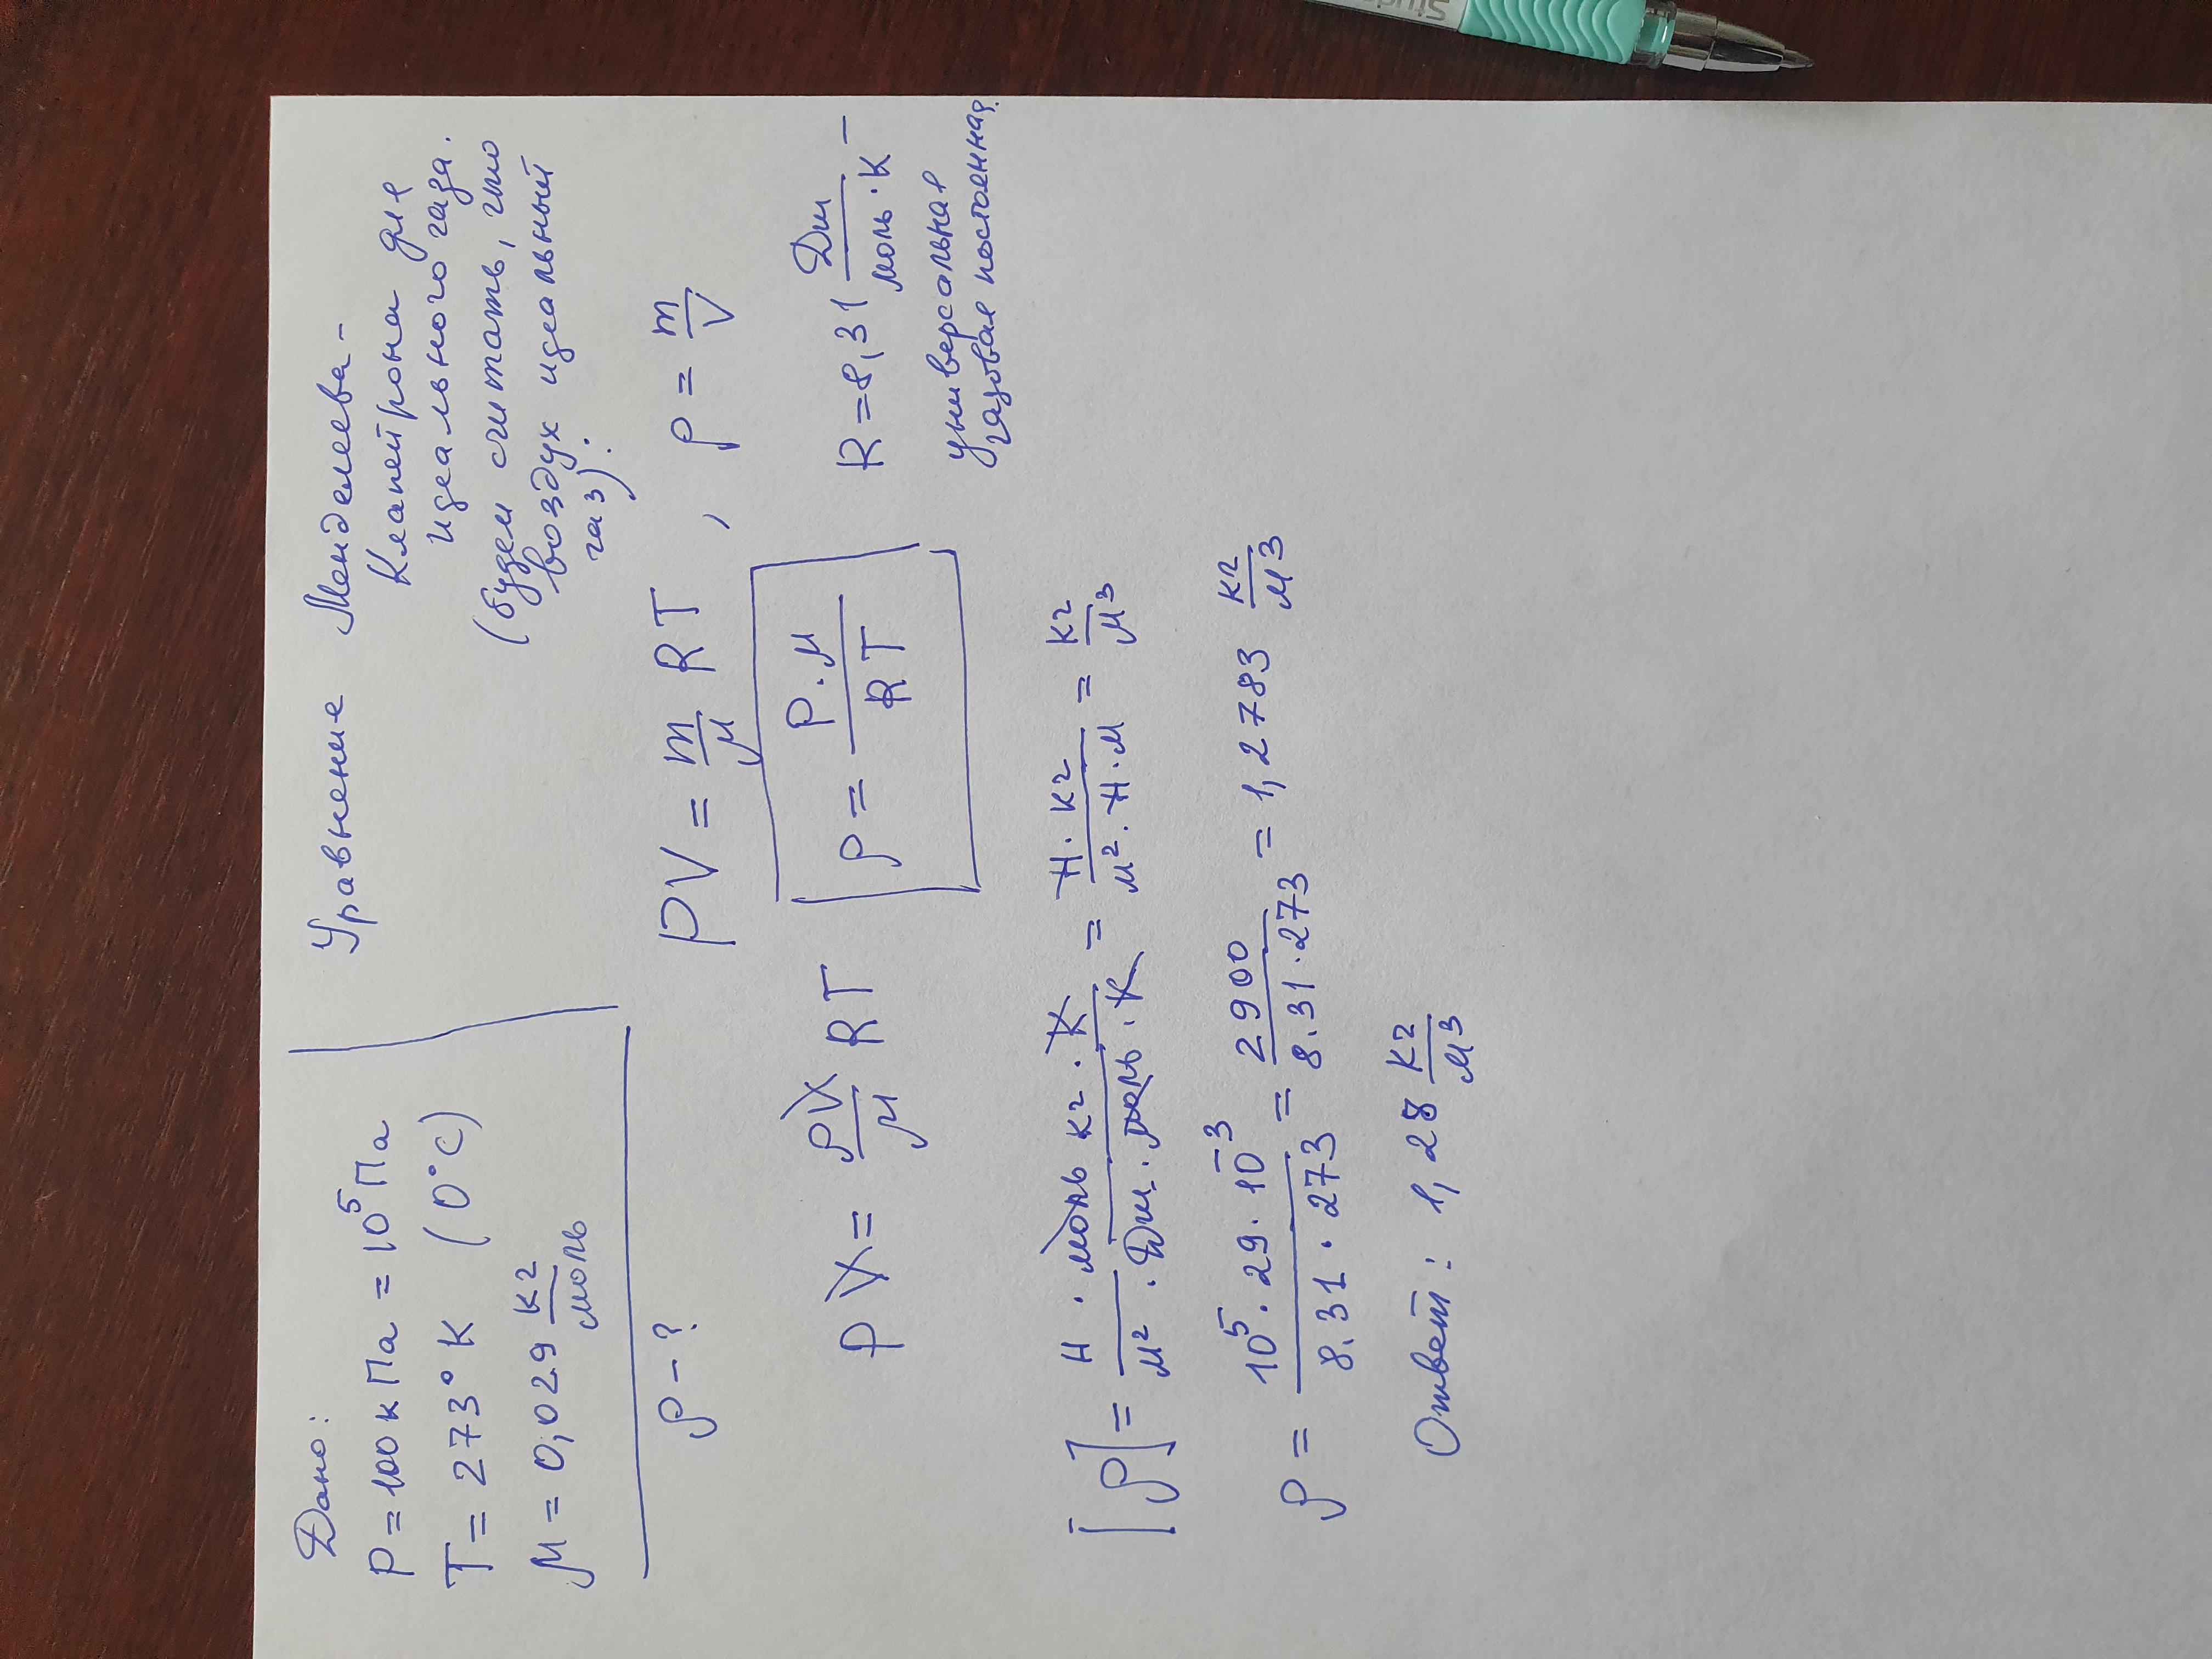 Дано:
P = 100 кПа = 10⁵ Па
T = 273° К (0°С)
μ = 0,029 кг/моль
ρ - ?
Уравнение Менделеева-
Клапейрона для
идеального газа.
(будем считать, что
воздух идеальный
газ):
PV = m/μ RT , ρ = m/V
PV = ρV/μ RT
ρ = P·μ/RT
R = 8,31 Дж/моль·К –
универсальная
газовая постоянная.
[ρ] = Н·моль кг·К/м²·Дж·моль·К = Н·кг/м²·Н·м = кг/м³
ρ = 10⁵·29·10⁻³/8.31·273 = 2900/8.31·273 = 1,2783 кг/м³
Ответ: 1,28 кг/м³